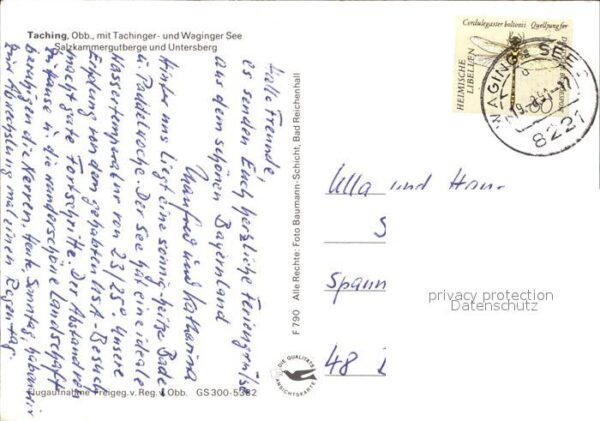 Taching, Obb., mit Tachinger- und Waginger See
Salzkammergutberge und Untersberg
Hallo Freunde
es senden Euch herzliche Feriengrüße
aus dem schönen Bayernland
Manfred und Katharina
Hinter uns liegt eine sonnig-heiße Bade-
u. Paddelwoche. Der See hat eine ideale
Wassertemperatur von 23/25° Unsere
Erholung von dem gehabten USA-Besuch
macht gute Fortschritte. Der Abstand von
zu Hause in die wunderschöne Landschaft
beruhigen die Nerven. Heute, Sonntag, haben wir
zur Abwechslung mal einen Regentag.
Flugaufnahme Freigeg. v. Reg. v. Obb. GS 300-5332
F 790 Alle Rechte: Foto Baumann-Schicht, Bad Reichenhall
DIE QUALITÄTS
ANSICHTSKARTE
Cordulegaster boltonii Quelljungfer
HEIMISCHE
LIBELLEN
60
Deutsche Bundespost
WAGING A. SEE
8221
Ulla und Han
S
Spann
48
privacy protection
Datenschutz